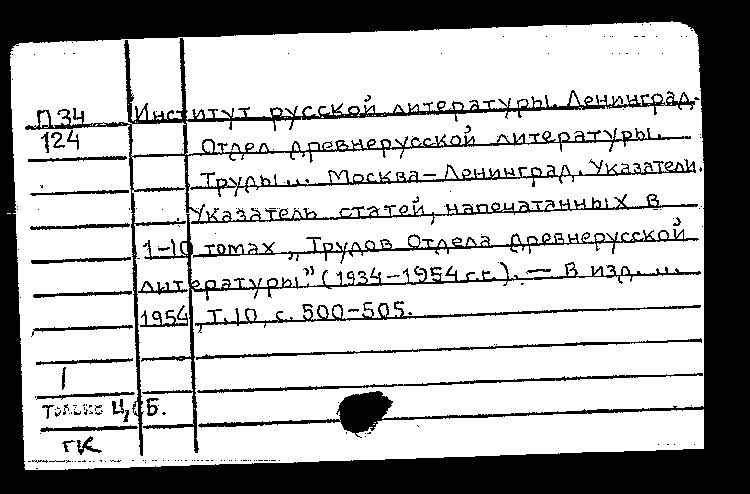 П34 Институт русской литературы. Ленинград.
124 Отдел древнерусской литературы.
Труды... Москва-Ленинград. Указатели.
Указатель статей, напечатанных в
1-10 томах „Трудов Отдела древнерусской
литературы" (1934-1954 г.г.). — В изд. ...
1954, Т.10, с. 500-505.
1
только ЦСБ.
ГК